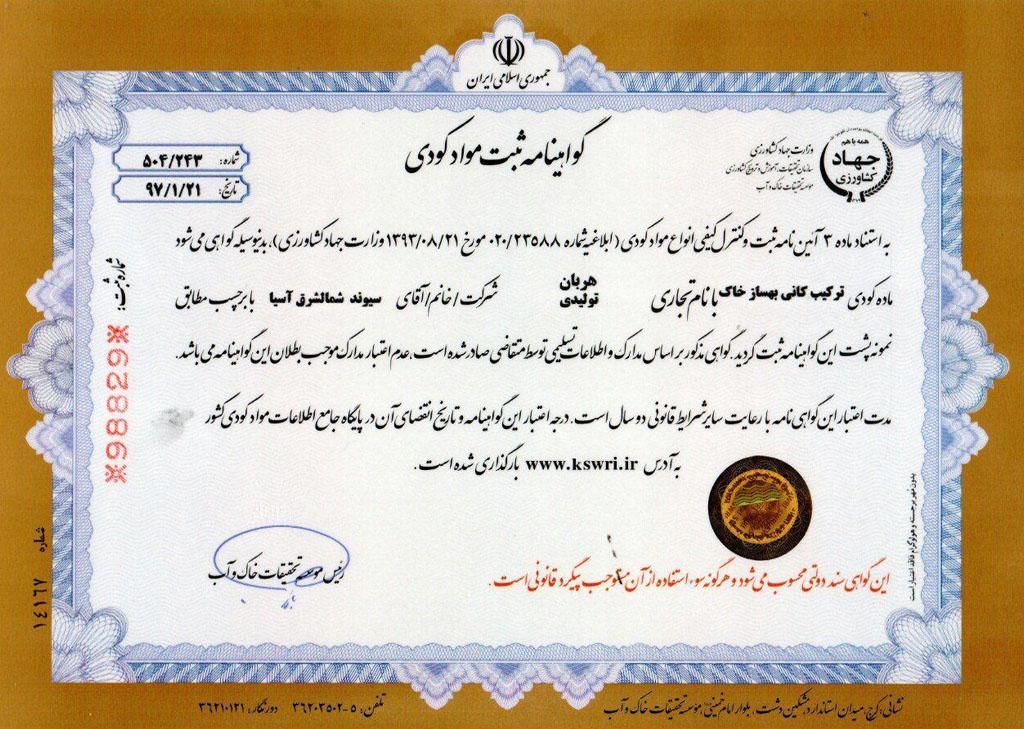 جمهوری اسلامی ایران
همه با هم
جهاد
کشاورزی
وزارت جهاد کشاورزی
سازمان تحقیقات، آموزش و ترویج کشاورزی
موسسه تحقیقات خاک و آب
گواهینامه ثبت مواد کودی
شماره: ۵۰۴/۲۴۳
تاریخ: ۹۷/۱/۲۱
به استناد ماده ۳ آئین نامه ثبت و کنترل کیفی انواع مواد کودی (ابلاغیه شماره ۰۲۰/۲۳۵۸۸ مورخ ۱۳۹۳/۰۸/۲۱ وزارت جهاد کشاورزی)، بدینوسیله گواهی می شود
ماده کودی ترکیب کانی بهساز خاک با نام تجاری هربان تولیدی شرکت/خانم/آقای سیوند شمالشرق آسیا با برچسب مطابق
نمونه پشت این گواهینامه ثبت گردید. گواهی مذکور بر اساس مدارک و اطلاعات تسلیمی توسط متقاضی صادر شده است، عدم اعتبار مدارک موجب بطلان این گواهینامه می باشد.
مدت اعتبار این گواهی نامه با رعایت سایر شرایط قانونی دو سال است. درجه اعتبار این گواهینامه و تاریخ انقضای آن در پایگاه جامع اطلاعات مواد کودی کشور
به آدرس www.kswri.ir بارگذاری شده است.
رئیس موسسه تحقیقات خاک و آب
این گواهی سند دولتی محسوب می شود و هرگونه سوء استفاده از آن موجب پیگرد قانونی است.
بدون مهر برجسته و هولوگرام فاقد اعتبار است
شماره ثبت:
※98829※
شماره
۱۴۱۶۷
نشانی: کرج، میدان استاندارد، مشکین دشت، بلوار امام خمینی، موسسه تحقیقات خاک و آب
تلفن: ۵-۳۶۲۰۳۵۰۲ دورنگار: ۳۶۲۱۰۱۲۱